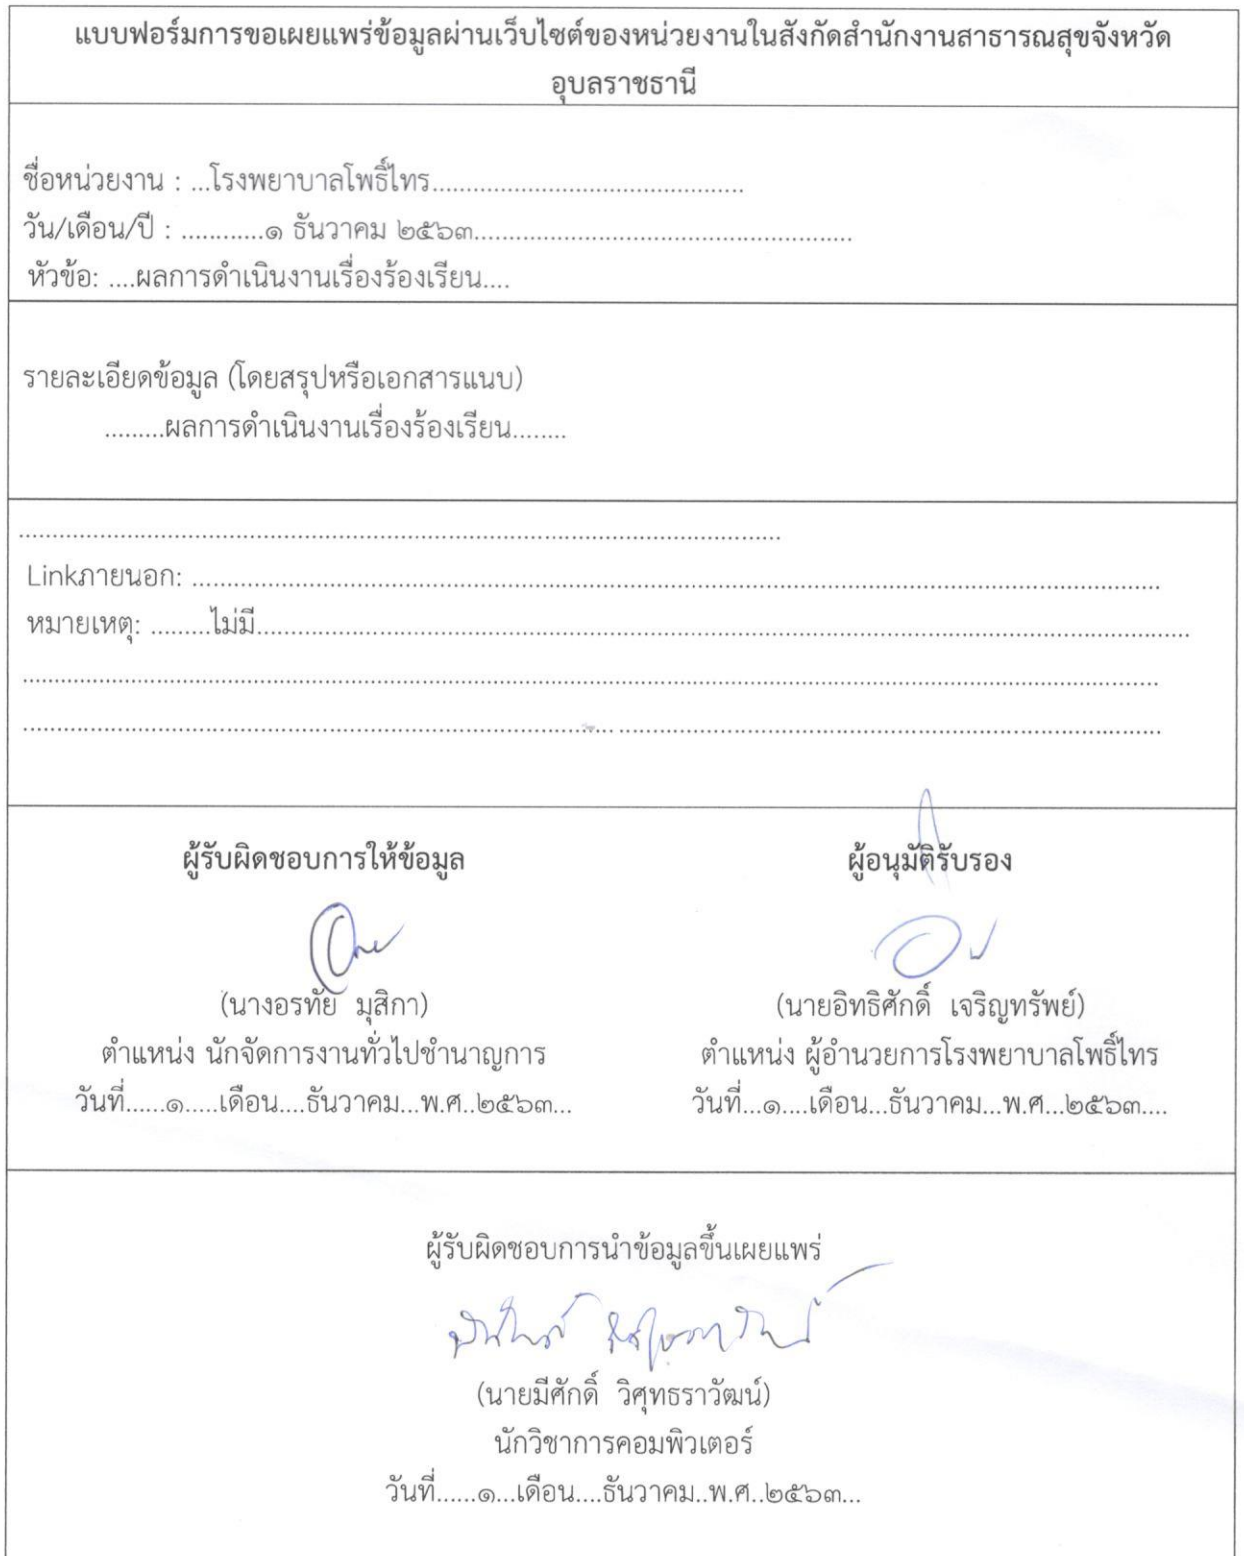 แบบฟอร์มการขอเผยแพร่ข้อมูลผ่านเว็บไซต์ของหน่วยงานในสังกัดสำนักงานสาธารณสุขจังหวัด
อุบลราชธานี
ชื่อหน่วยงาน : ...โรงพยาบาลโพธิ์ไทร..............................................
วัน/เดือน/ปี : ............๑ ธันวาคม ๒๕๖๓........................................................
หัวข้อ: ....ผลการดำเนินงานเรื่องร้องเรียน....
รายละเอียดข้อมูล (โดยสรุปหรือเอกสารแนบ)
.........ผลการดำเนินงานเรื่องร้องเรียน........
................................................................................................................
Linkภายนอก: ................................................................................................................................................
หมายเหตุ: .........ไม่มี..........................................................................................................................................
........................................................................................................................................................................
........................................................................................................................................................................
ผู้รับผิดชอบการให้ข้อมูล
ผู้อนุมัติรับรอง
(นางอรทัย มุสิกา)
(นายอิทธิศักดิ์ เจริญทรัพย์)
ตำแหน่ง นักจัดการงานทั่วไปชำนาญการ
ตำแหน่ง ผู้อำนวยการโรงพยาบาลโพธิ์ไทร
วันที่......๑.....เดือน....ธันวาคม...พ.ศ..๒๕๖๓...
วันที่...๑....เดือน...ธันวาคม...พ.ศ...๒๕๖๓....
ผู้รับผิดชอบการนำข้อมูลขึ้นเผยแพร่
(นายมีศักดิ์ วิศุทธราวัฒน์)
นักวิชาการคอมพิวเตอร์
วันที่......๑...เดือน....ธันวาคม..พ.ศ..๒๕๖๓...